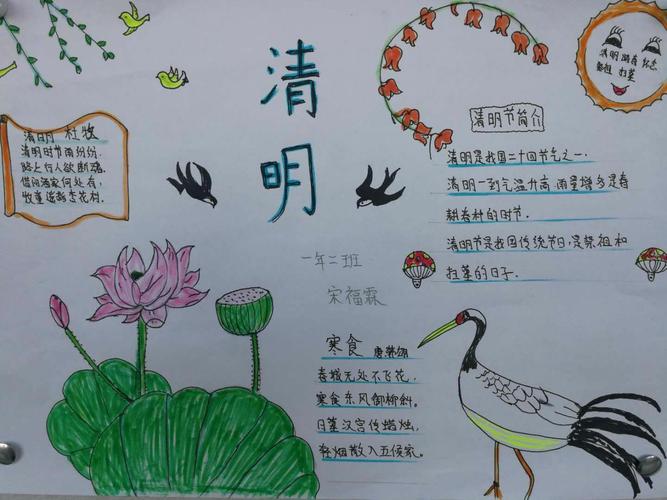 清明
清明 杜牧
清明时节雨纷纷,
路上行人欲断魂。
借问酒家何处有,
牧童遥指杏花村。
清明
祭祖 扫墓
清明节简介
清明是我国二十四节气之一。
清明一到气温升高,雨量增多是春
耕春种的时节.
清明节是我国传统节日,是祭祖和
扫墓的日子.
一年二班
宋福霖
寒食 唐韩翃
春城无处不飞花,
寒食东风御柳斜。
日暮汉宫传蜡烛,
轻烟散入五侯家。